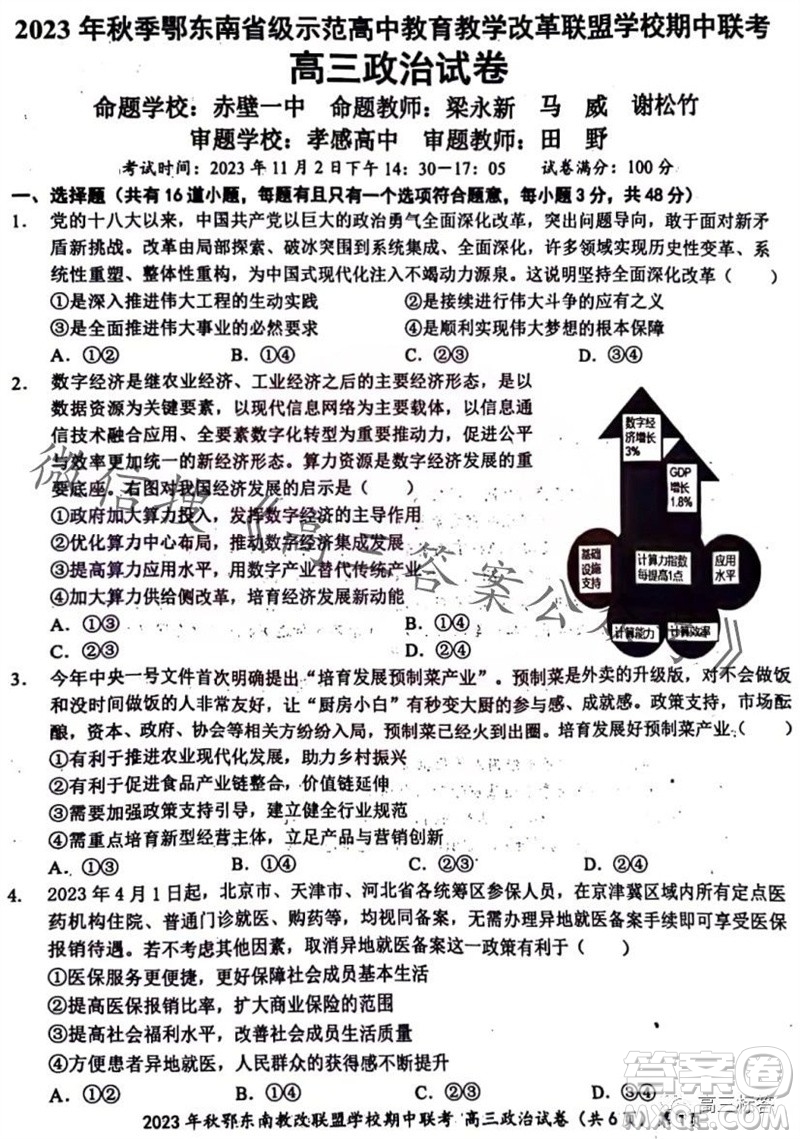 2023年秋季鄂东南省级示范高中教育教学改革联盟学校期中联考
高三政治试卷
命题学校：赤壁一中 命题教师：梁永新 马 威 谢松竹
审题学校：孝感高中 审题教师：田 野
考试时间：2023年11月2日下午14：30-17：05 试卷满分：100分
一、选择题（共有16道小题，每题有且只有一个选项符合题意，每小题3分，共48分）
1. 党的十八大以来，中国共产党以巨大的政治勇气全面深化改革，突出问题导向，敢于面对新矛
盾新挑战。改革由局部探索、破冰突围到系统集成、全面深化，许多领域实现历史性变革、系
统性重塑、整体性重构，为中国式现代化注入不竭动力源泉。这说明全面深化改革（ ）
①是深入推进伟大工程的生动实践 ②是接续进行伟大斗争的应有之义
③是全面推进伟大事业的必然要求 ④是顺利实现伟大梦想的根本保障
A．①② B．①④ C．②③ D．③④
2. 数字经济是继农业经济、工业经济之后的主要经济形态，是以
数据资源为关键要素，以现代信息网络为主要载体，以信息通
信技术融合应用、全要素数字化转型为重要推动力，促进公平
与效率更加统一的新经济形态。算力资源是数字经济发展的重
要底座。右图对我国经济发展的启示是（ ）
①政府加大算力投入，发挥数字经济的主导作用
②优化算力中心布局，推动数字经济集成发展
③提高算力应用水平，用数字产业替代传统产业
④加大算力供给侧改革，培育经济发展新动能
A．①③ B．①④
C．②③ D．②④
数字经
济增长
3%
GDP
增长
1.8%
基础
设施
支持
计算力指数
每提高1点
应用
水平
计算能力
计算效率
3. 今年中央一号文件首次明确提出“培育发展预制菜产业”。预制菜是外卖的升级版，对不会做饭
和没时间做饭的人非常友好，让“厨房小白”有秒变大厨的参与感、成就感。政策支持，市场酝
酿，资本、政府、协会等相关方纷纷入局，预制菜已经火到出圈。培育发展好预制菜产业（ ）
①有利于推进农业现代化发展，助力乡村振兴
②有利于促进食品产业链整合，价值链延伸
③需要政策支持引导，建立健全行业规范
④需重点培育新型经营主体，立足产品与营销创新
A．①③ B．①④ C．②③ D．②④
4. 2023年4月1日起，北京市、天津市、河北省各统筹区参保人员，在京津冀区域内所有定点医
药机构住院、普通门诊就医、购药等，均视同备案，无需办理异地就医备案手续即可享受医保
报销待遇。若不考虑其他因素，取消异地就医备案这一政策有利于（ ）
①医保使用更便捷，更好保障社会成员基本生活
②提高医保报销比率，扩大商业保险的范围
③提高社会福利水平，改善社会成员生活质量
④方便患者异地就医，人民群众的获得感提升
A．①③ B．①④ C．②③ D．②④
2023年秋鄂东南教改联盟学校期中联考 高三政治试卷（共6页）第1页
微信搜《高三答案公众号》
答案圈
高三标答